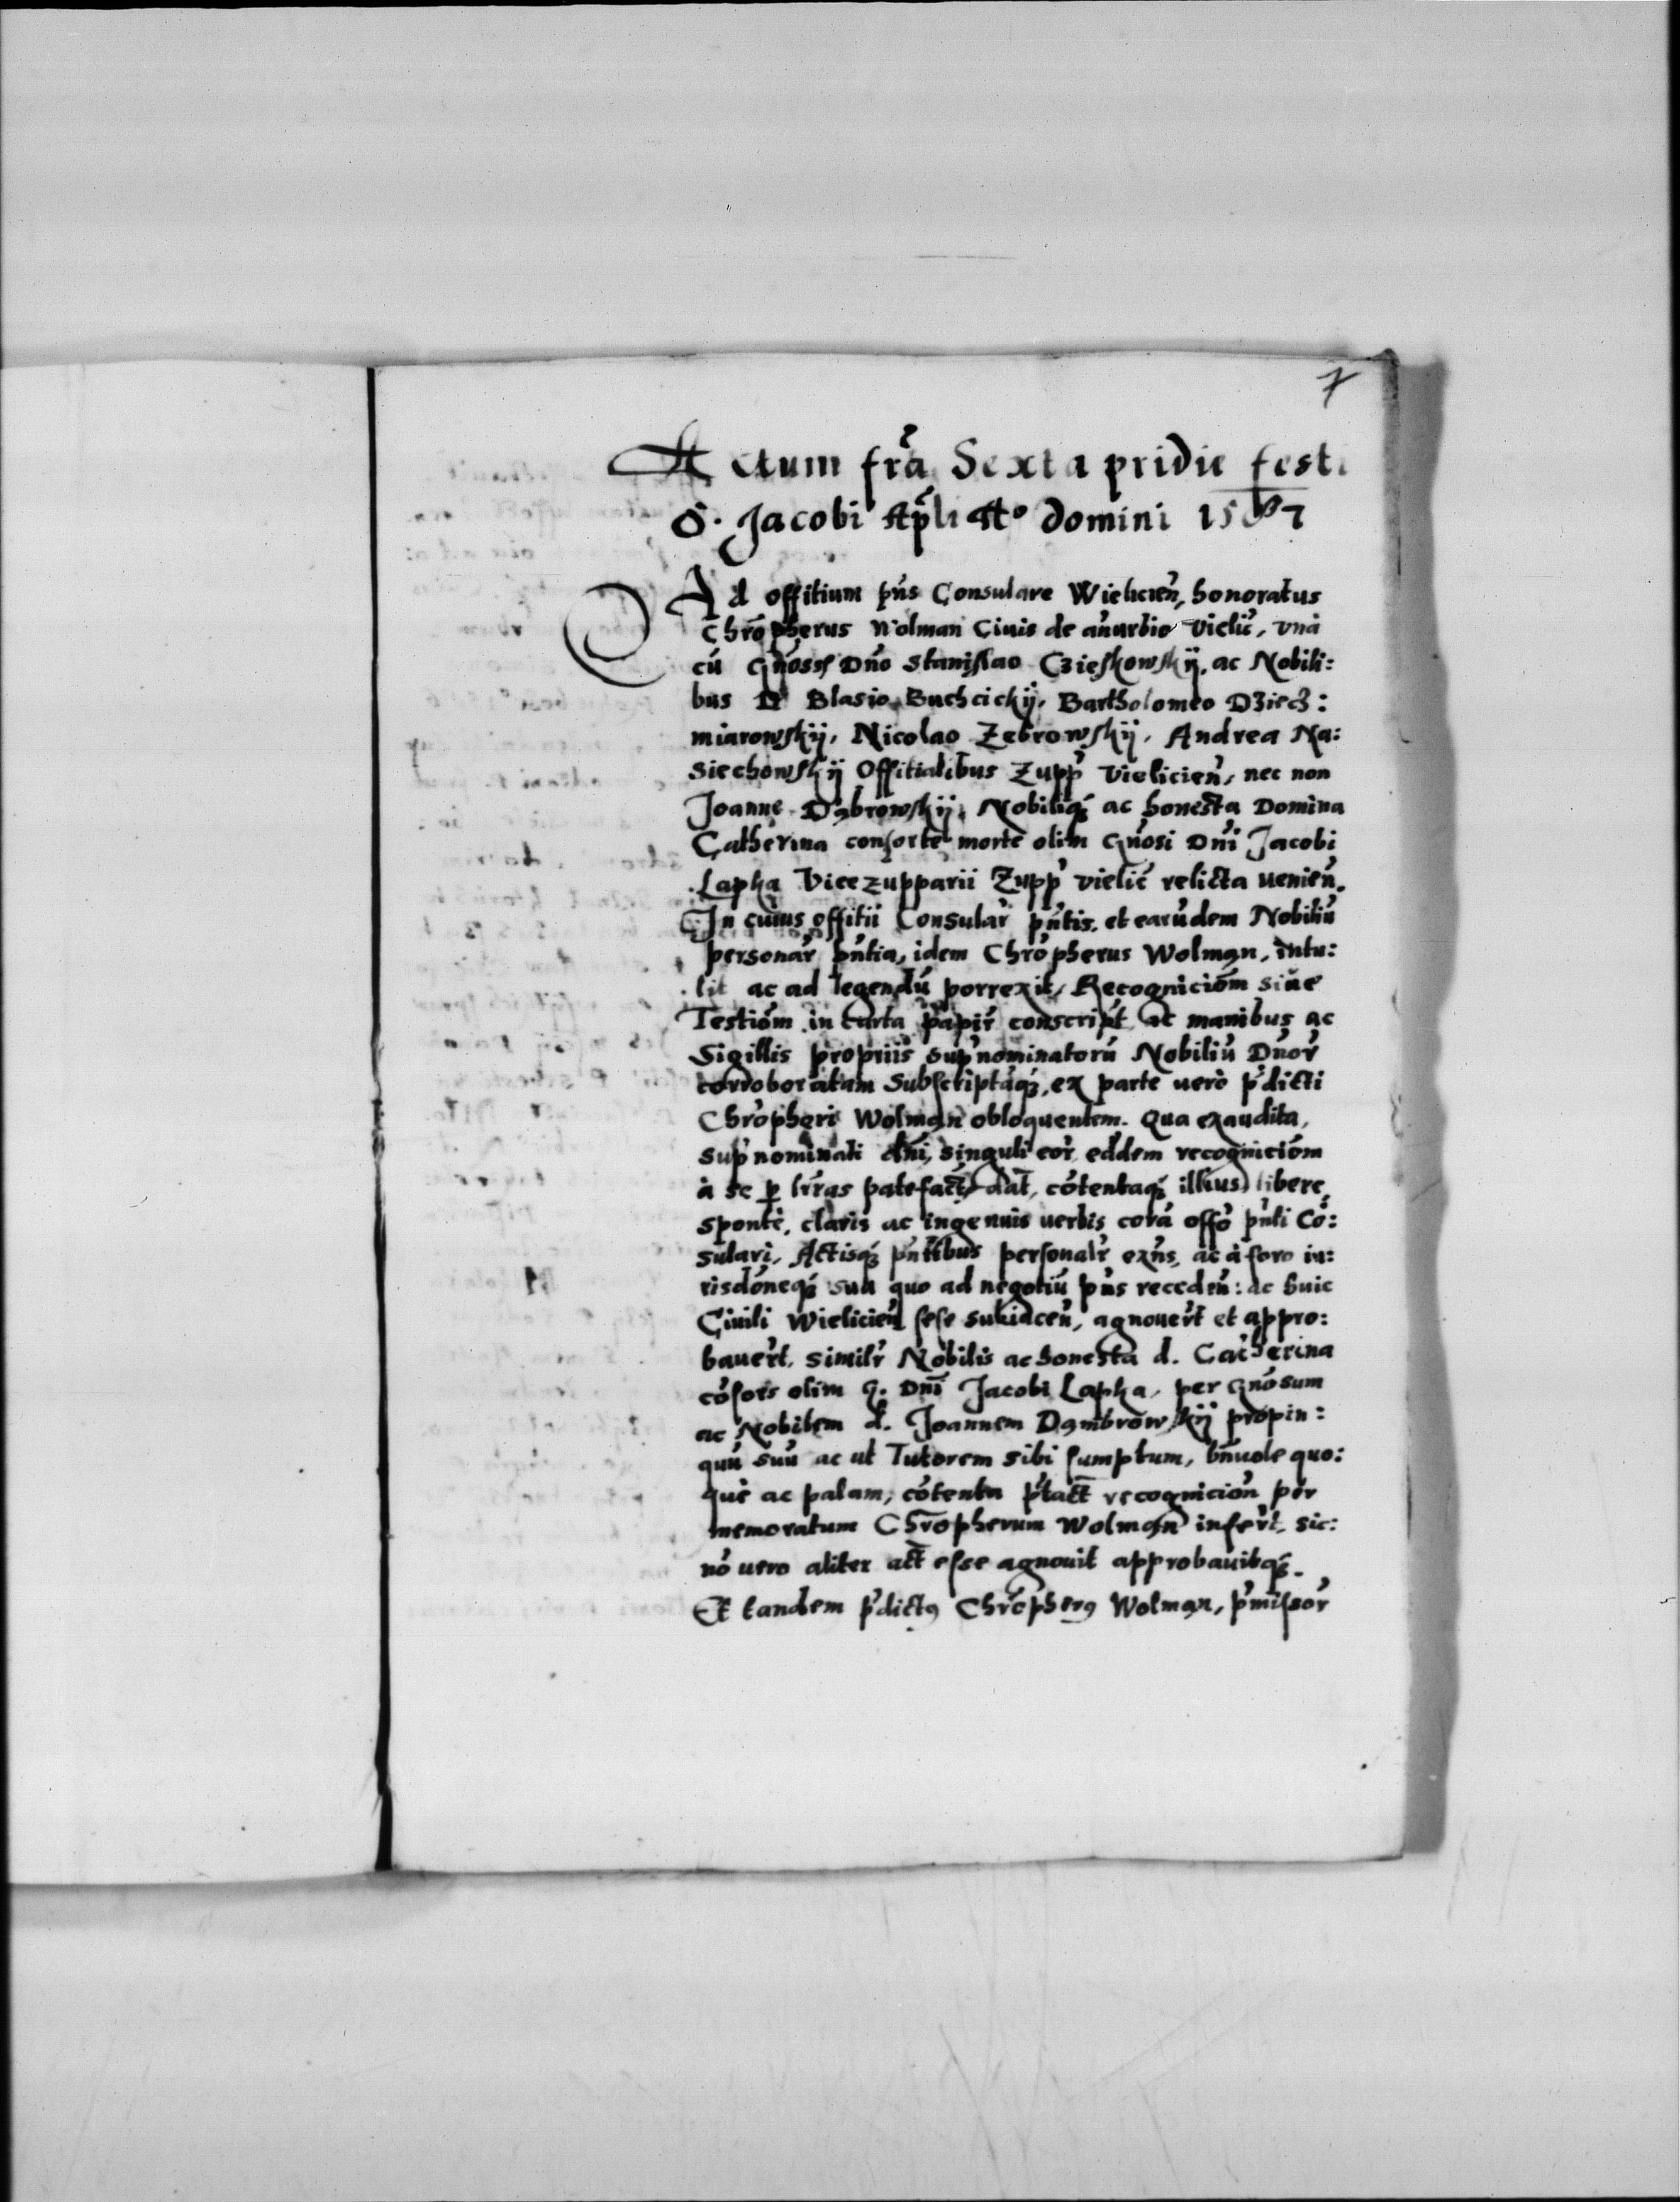 7
Actum fr̃a Sexta pridie festi
S. Jacobi Ap̃li Aº domini 1567
Ad offitium pñs Consulare Wielicień, honoratus
Chrõpherus Wolman Ciuis de añurbio vielic̃, vnà
cũ Gñoss Dño Stanislao Czieskowskij, ac Nobili:
bus D Blasio Buchcickij, Bartholomeo Dziecz:
miarowskij, Nicolao Zebrowskij, Andrea Na:
siechowskij Offitialibus Zupp̃ vielicień, nec non
Joanne Dąbrowskij, Nobiliq́ ac honesta Domina
Catherina consorte morte olim Gñosi Dñi Jacobi
Lapka Vicezupparii Zupp̃ vielic̃ relicta venień.
In cuius offitii Consular̃ pñtis, et earũdem Nobiliũ
personar̃ pñtia, idem Chrõpherus Wolman, intu:
lit ac ad legendũ porrexit, Recogniciõm siue
Testiõm in carta papir̃ conscript̃ ac manibus ac
Sigillis propriis sup̃nominatorũ Nobiliũ Dñor̃
corroboratam subscriptáq́, ex parte uerò p̃dicti
Chrõpheri Wolman obloquentem. Qua exaudita,
sup̃nominati dñi, singuli eor̃ eãdem recogniciõm
à se ꝑ lr̃as patefact̃ dat̃, cõtentaq́ illius libere
sponte, claris ac ingenuis uerbis corã offõ pñti Cõ:
sulari, Actisq́ pñtibus personalr̃ exñs, ac à foro iu:
risdõneq́ sua quo ad negotiũ pñs receděn: ac huic
Ciuili Wielicień sese subiacěn, agnouer̃t et appro:
bauer̃t, similr̃ Nobilis ac honesta d. Catherina
cõsors olim G. Dñi Jacobi Lapka, per Gñosum
ac Nobilem d. Joannem Dąmbrowskij propin:
quũ suũ ac ut Tutorem sibi sumptum, bñuole quo:
què ac palam, cõtenta p̃tact̃ recogniciõn per
memoratum Chrõpherum Wolman infer̃t, sic:
nõ uero aliter act̃ esse agnouit approbauitq́.
Et tandem p̃dictꝰ Chrõpherꝰ Wolman, p̃missor̃